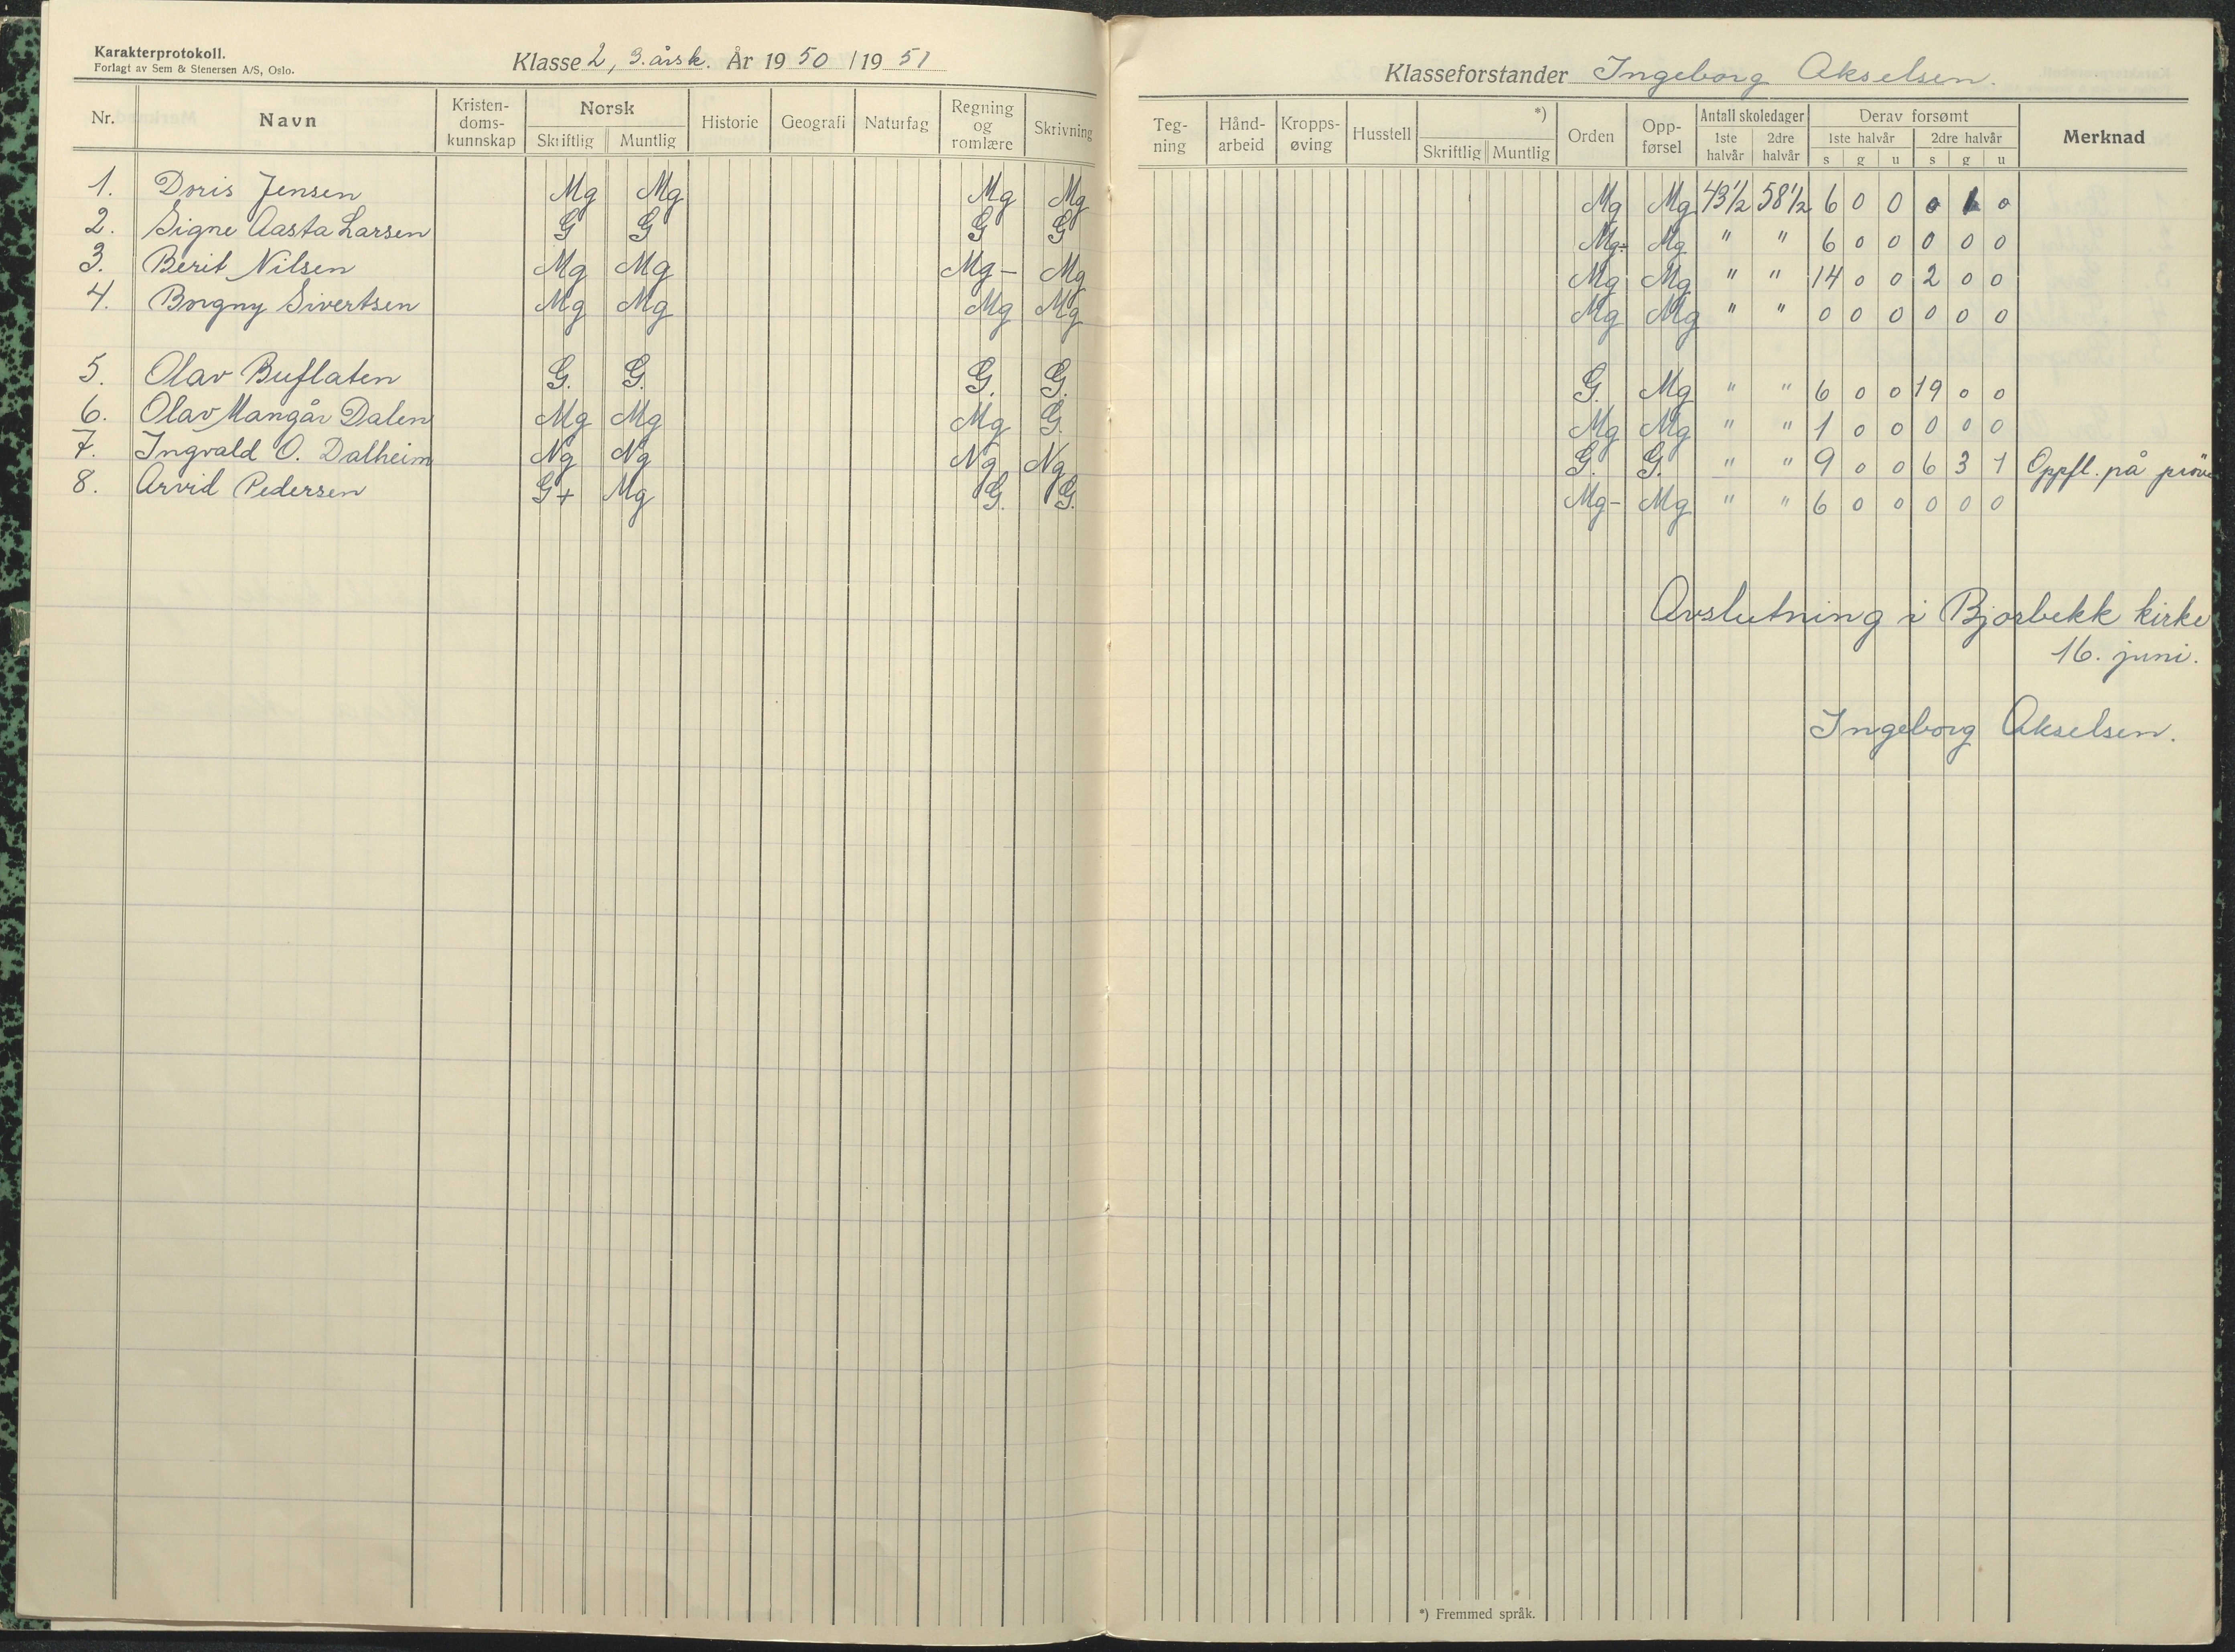 Karakterprotokoll.
Forlagt av Sem & Stenersen A/S, Oslo.
Klasse 2, 3. årsk. År 1950/1951
Klasseforstander Ingeborg Akselsen.
Nr. Navn Kristen-doms-kunnskap Norsk Skriftlig Muntlig Historie Geografi Naturfag Regning og romlære Skrivning Teg-ning Hånd-arbeid Kropps-øving Husstell *) Skriftlig Muntlig Orden Opp-førsel Antall skoledager 1ste halvår 2dre halvår Derav forsømt 1ste halvår s g u 2dre halvår s g u Merknad
1. Doris Jensen Mg Mg Mg Mg Mg Mg 43 1/2 58 1/2 6 0 0 0 1 0
2. Signe Aasta Larsen G G G G Mg- Mg " " 6 0 0 0 0 0
3. Berit Nilsen Mg Mg Mg- Mg Mg Mg " " 14 0 0 2 0 0
4. Borgny Sivertsen Mg Mg Mg Mg Mg Mg " " 0 0 0 0 0 0
5. Olav Buflaten G. G. G. G. G. Mg " " 6 0 0 19 0 0
6. Olav Mangår Dalen Mg Mg Mg G. Mg Mg " " 1 0 0 0 0 0
7. Ingvald O. Dalheim Ng Ng Ng Ng G. G. " " 9 0 0 6 3 1 Oppfl. på prøve
8. Arvid Pedersen G+ Mg G. G. Mg- Mg " " 6 0 0 0 0 0
Avslutning i Bjorbekk kirke
16. juni.
Ingeborg Akselsen.
*) Fremmed språk.